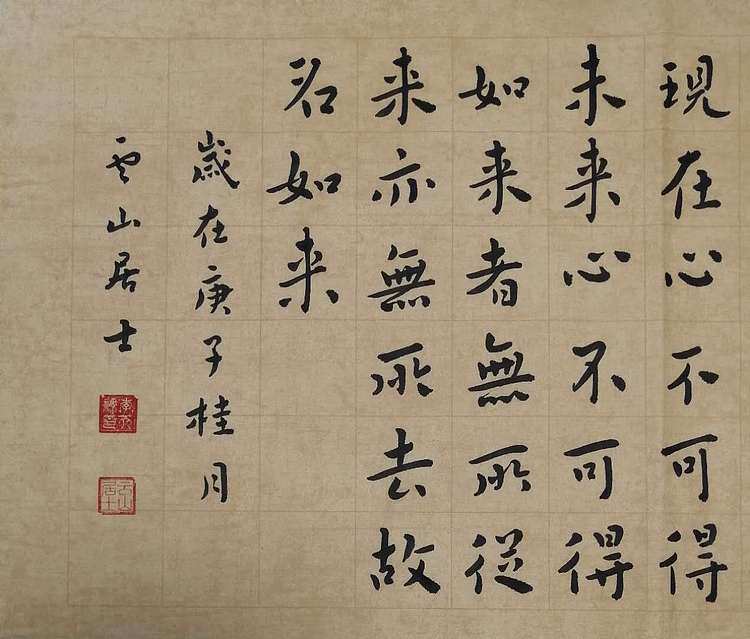 現在心不可得
未来心不可得
如来者無所從
来亦無所去故
名如来
歲在庚子桂月
雲山居士